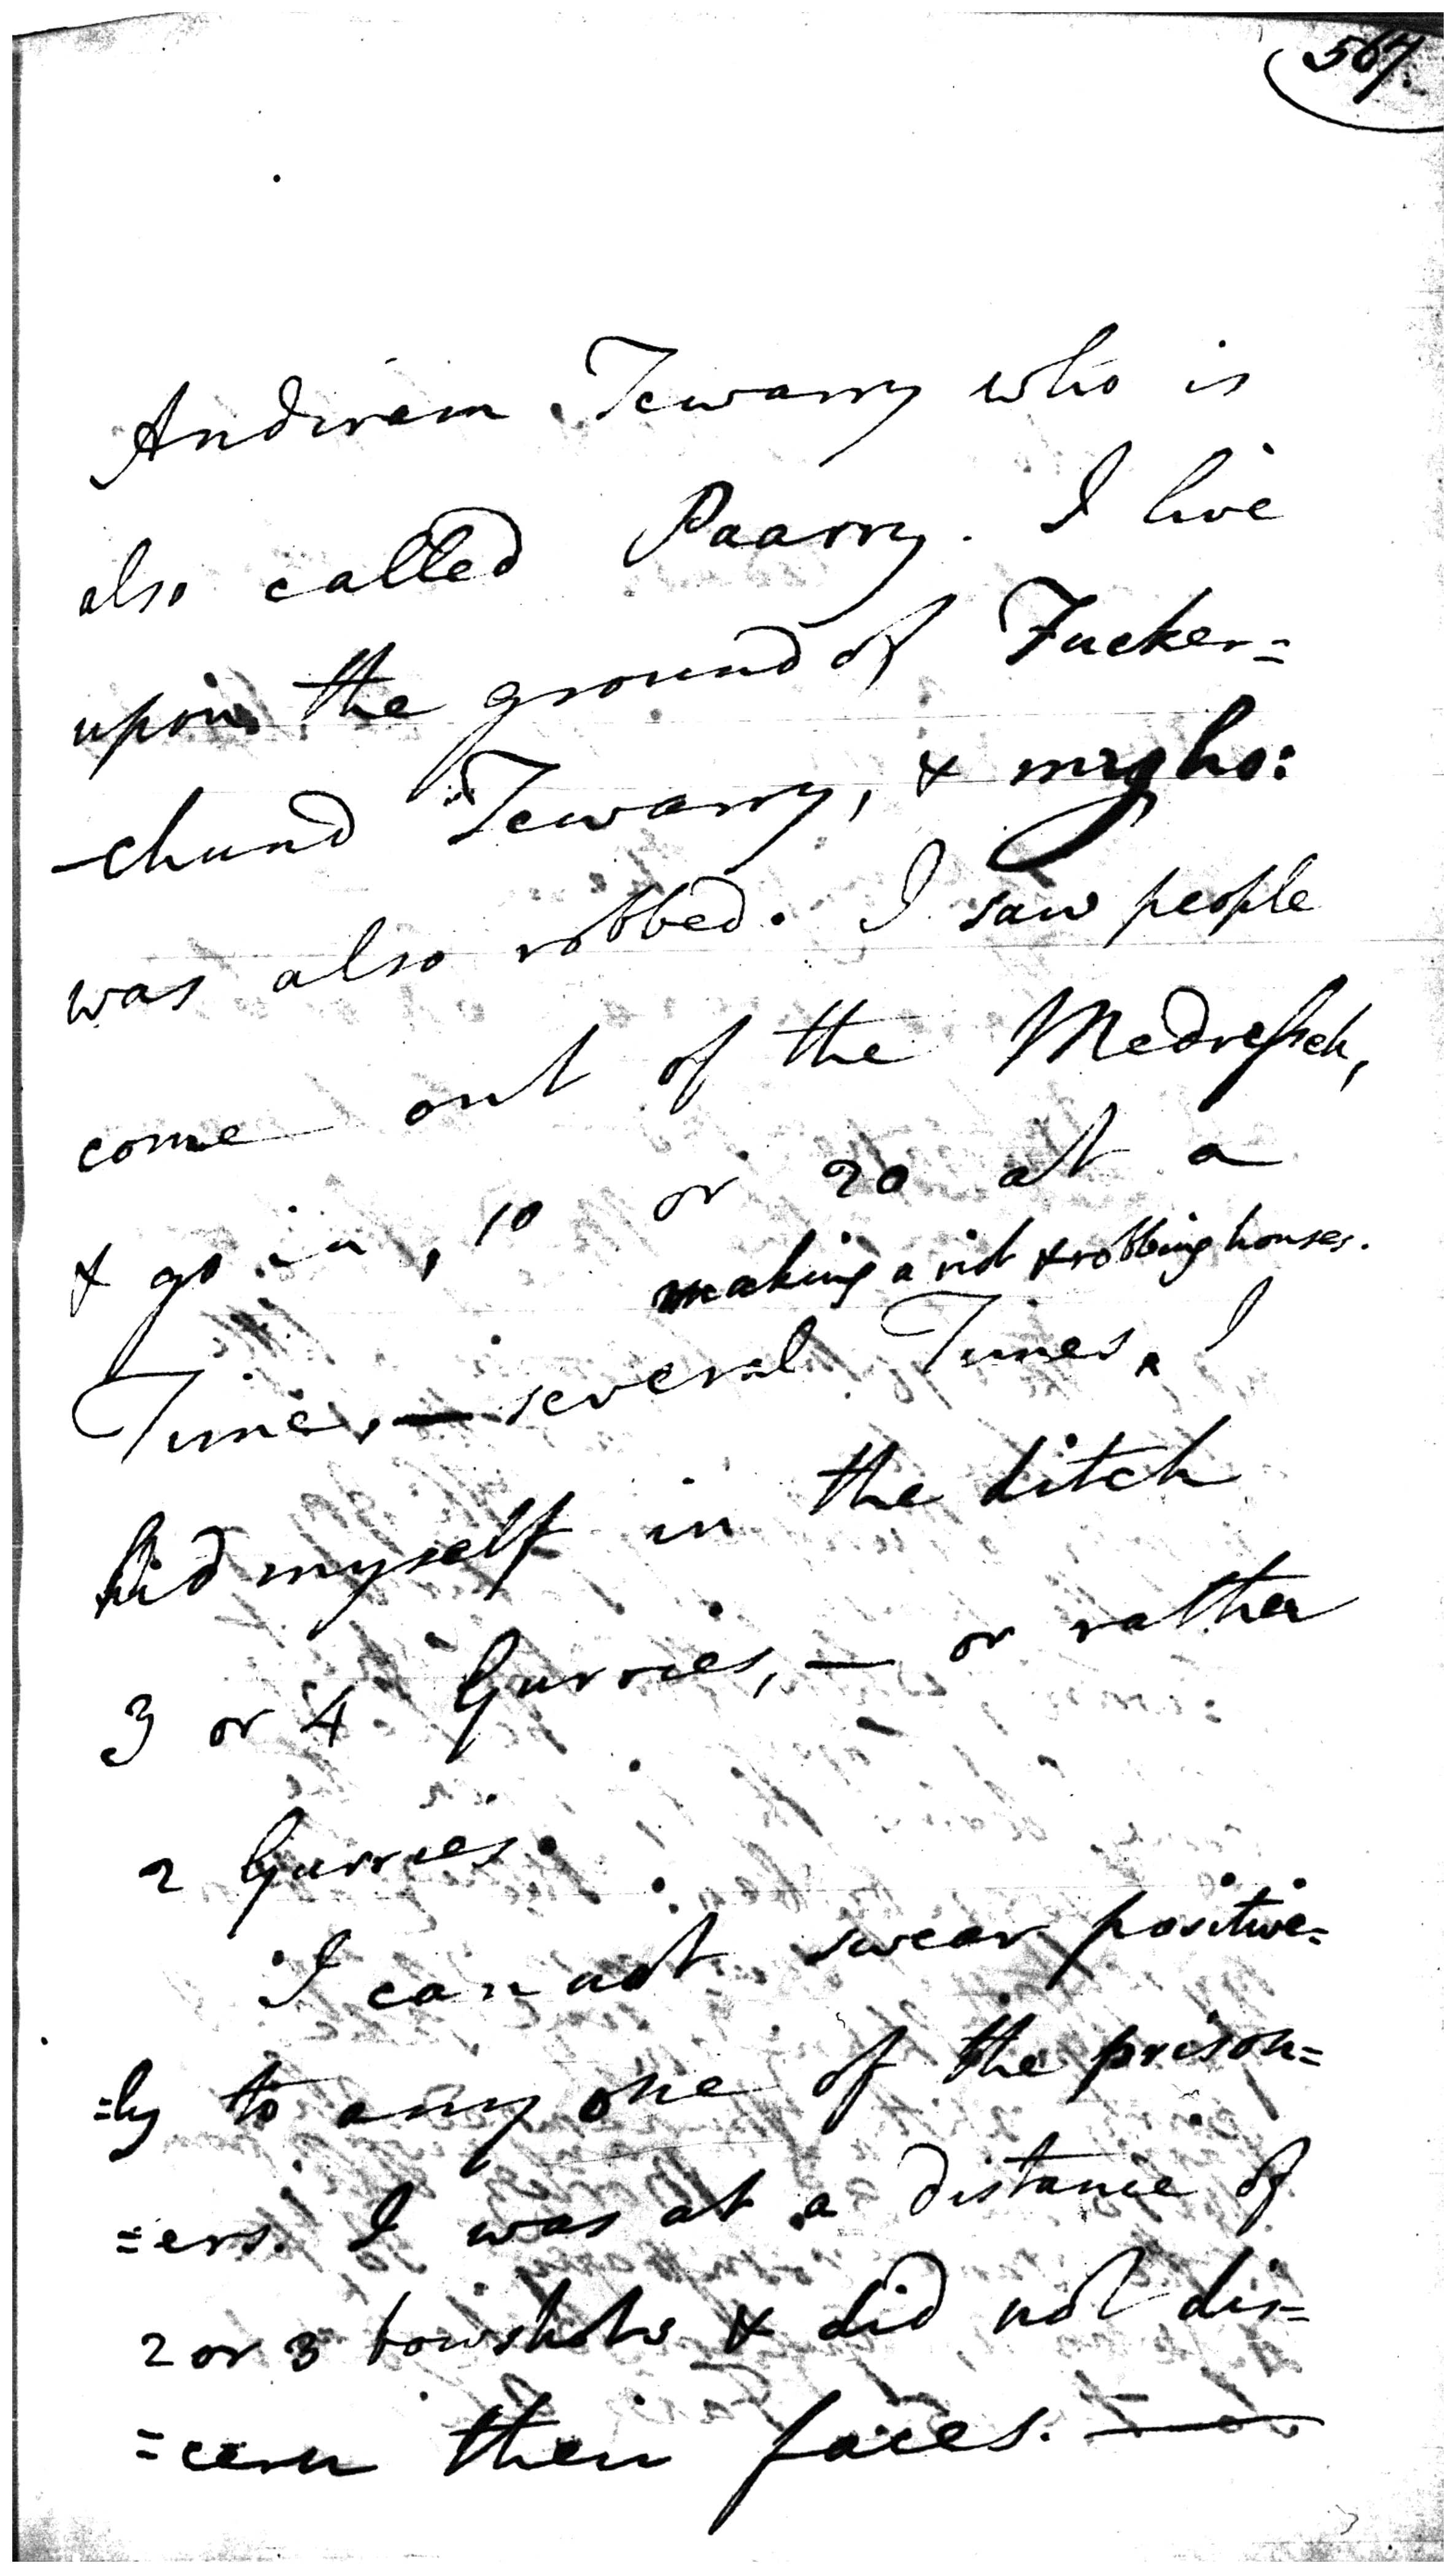 567.
Andiram Tewarry who is
also called Paarry. I live
upon the ground of Fucker=
-chund Tewarry, & my ho:
was also robbed. I saw people
come out of the Medresseh,
& go in, 10 or 20 at a
making a riot & robbing houses.
Time, — several Times. ʌ I
hid myself in the ditch
3 or 4 Gurries, — or rather
2 Gurries.
I can not swear positive=
=ly to any one of the prison=
=ers. I was at a distance of
2 or 3 bowshots & did not dis=
=cern their faces. —